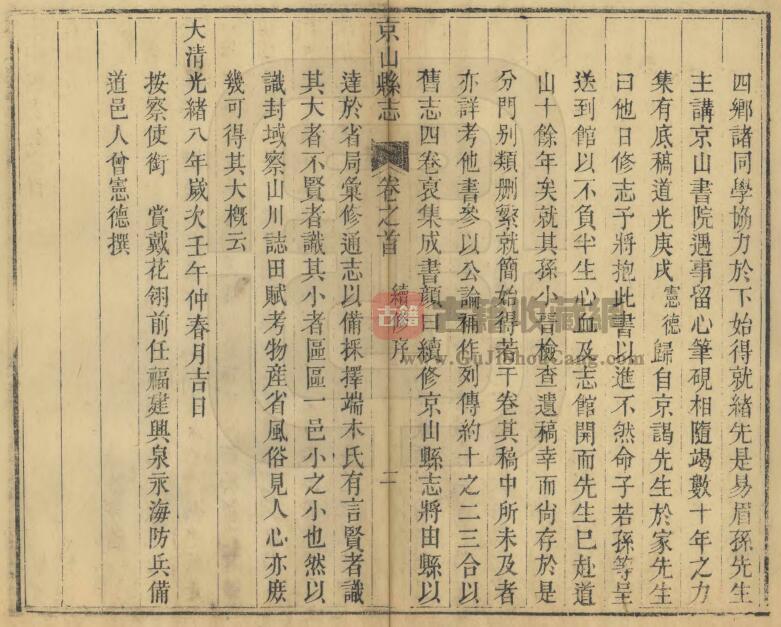 四鄉諸同學協力於下始得就緒先是易眉孫先生
主講京山書院遇事留心筆硯相隨竭數十年之力
集有底稿道光庚戌憲德歸自京謁先生於家先生
曰他日修志予將抱此書以進不然命子若孫等呈
送到館以不負半生心血及志館開而先生已赴道
山十餘年矣就其孫小書檢查遺稿幸而尙存於是
分門別類刪繁就簡始得若干卷其稿中所未及者
亦詳考他書參以公論稱作列傳約十之二三合以
舊志四卷裒集成書顔曰續修京山縣志將由縣以
京山縣志 卷之首 續修序 二
達於省局彙修通志以備採擇端木氏有言賢者識
其大者不賢者識其小者區區一邑小之小也然以
識封域察山川誌田賦考物産省風俗見人心亦庶
幾可得其大槪云
大清光緒八年歲次壬午仲春月吉日
按察使銜 賞戴花翎前任福建興泉永海防兵備
道邑人曾憲德撰
古籍 古籍收藏網
www.GuJiShouCang.com